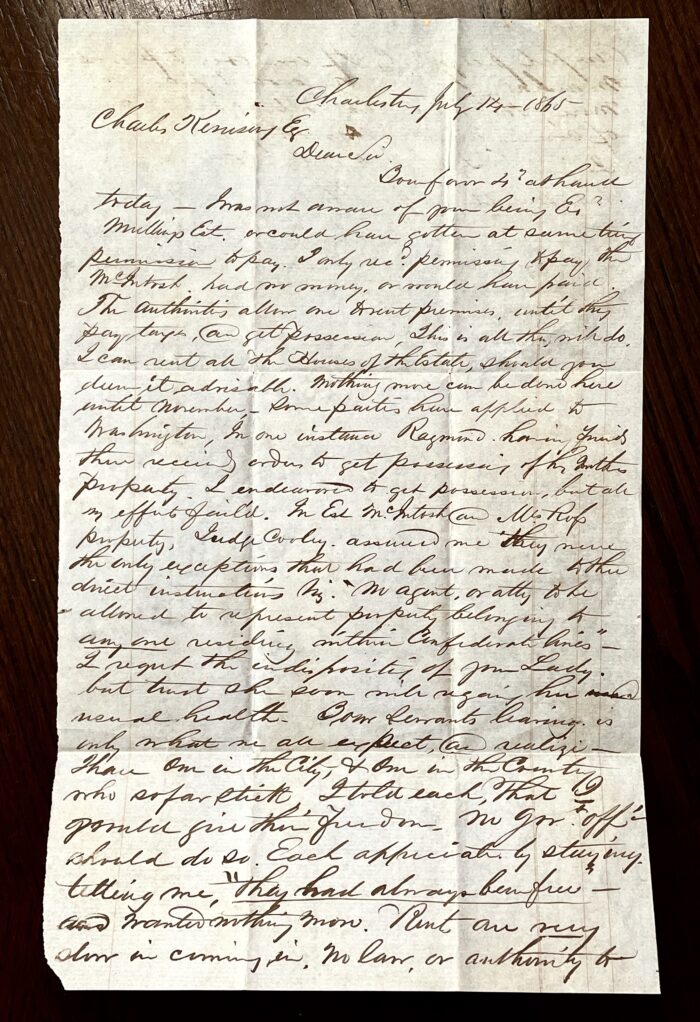 Charleston, July 14 - 1865
Charles Kerrison Esq
Dear Sir
Your favor 4th at hand
today - I was not aware of your being Exr
Mullings Est. or could have gotten at same time
permission to pay. I only recd permission to pay the
McIntosh, had no money, or would have paid.
The authorities allow one to rent premises, until they
pay taxes, and get possession, This is all they will do.
I can rent all the Houses of the Estate, should you
deem it advisable. Nothing more can be done here
until November, - Some parties have applied to
Washington, In one instance Raymond having friends
there received orders to get possession of his Mothers
Property. I endeavored to get possession, but all
my effort faild. In Est McIntosh and Mrs Ross
property, Judge Cooley assured me they were
the only exceptions that had been made to the
direct instructions viz. "No agent, or atty to be
allowed to represent property belonging to
any one residing within Confederate lines" -
I regret the indisposition of your Lady.
but trust she soon will regain her
usual health. Your Servants leaving is
only what we all expect, and realize -
I have One in the City, & One in the Country
who so far stick I told each, That I
would give their Freedom, No Govt offr
should do so. Each appreciate by staying.
telling me, "they had always been free" -
and wanted nothing more. Rent are very
slow in coming in. No law, or authority to